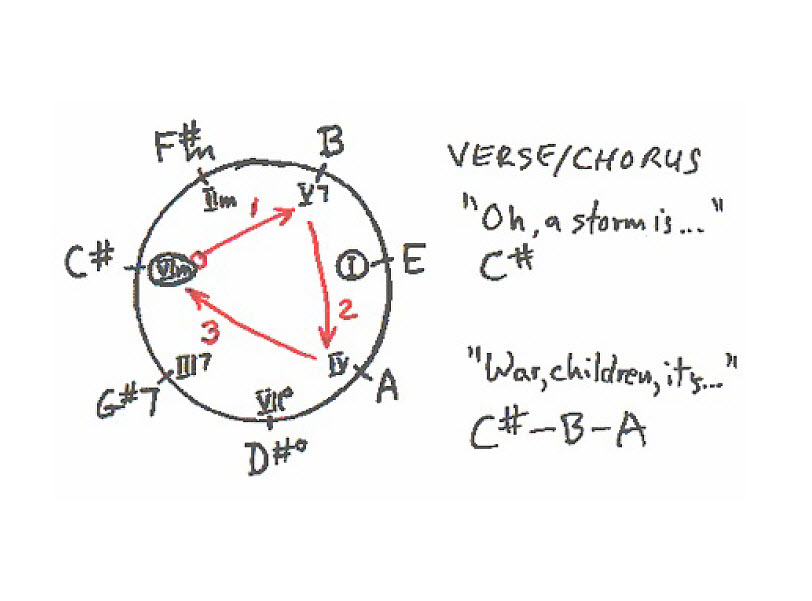 F#m
B
VERSE/CHORUS
IIm
V7
1
"Oh, a storm is..."
C#
VIm
I
E
C#
2
3
III7
IV
"War, children, it's..."
G#7
VII°
A
C#-B-A
D#°